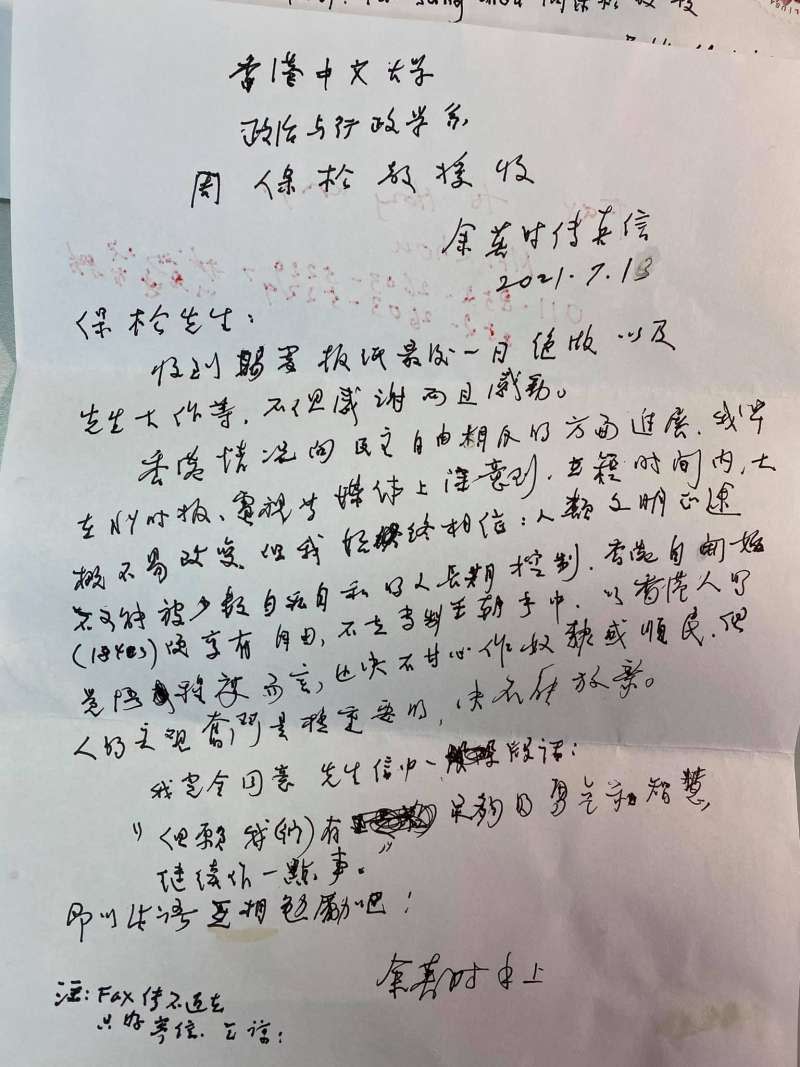 香港中文大学
政治与行政学系
周保松教授收
余英时传真信
2021.7.13
保松先生:
收到赐寄报纸最后一日绝版以及
先生大作等,不但感谢而且感动。
香港情况向民主自由相反的方面进展,我早
在NY时报、電視等媒体上注意到,在短时间内,大
概不易改变。但我始终相信:人類文明正途
不可能被少数自私自利的人长期控制,香港自開始
(1840s)便享有自由,不在专制王朝手中,以香港人的
觉悟程度而言,也决不甘心作奴隸或順民。但
人的主观奮鬥是极重要的,决不能放棄。
我完全同意先生信中一段话:
"但願我(们)有足夠的勇气和智慧,
继续作一點事。"
即以此语互相勉勵吧!
余英时手上
注:Fax传不过去
只好寄信。乞谅!